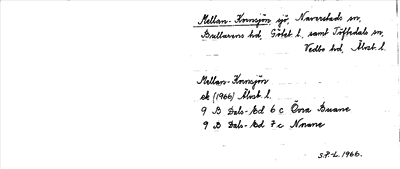 Mellan-Kornsjön sjö, Naverstads sn,
Bullarens hd, Götet l. samt Töftedals sn,
Vedbo hd, Älvsb. l.
Mellan-Kornsjön
ek (1966) Älvsb. l.
9 B Dals-Ed 6 c Östra Buane
9 B Dals-Ed 7 c
S.P.-L. 1966.